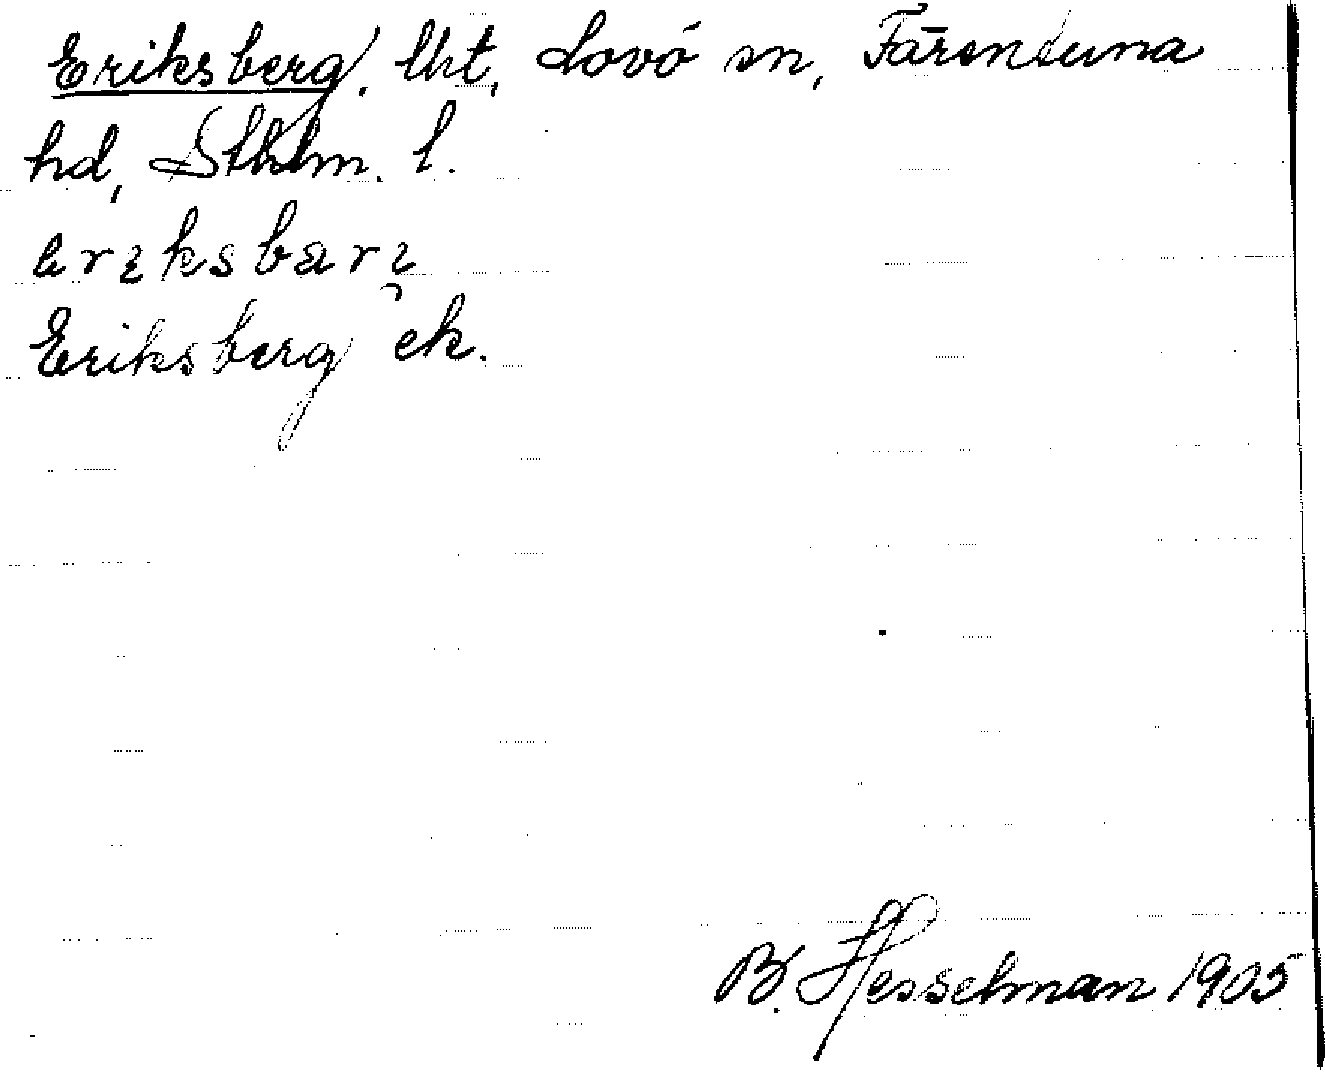 Eriksberg, lht, Lovö sn, Färentuna
hd, Sthlm. l.
Eriksberg ek.
B. Hesselman 1905